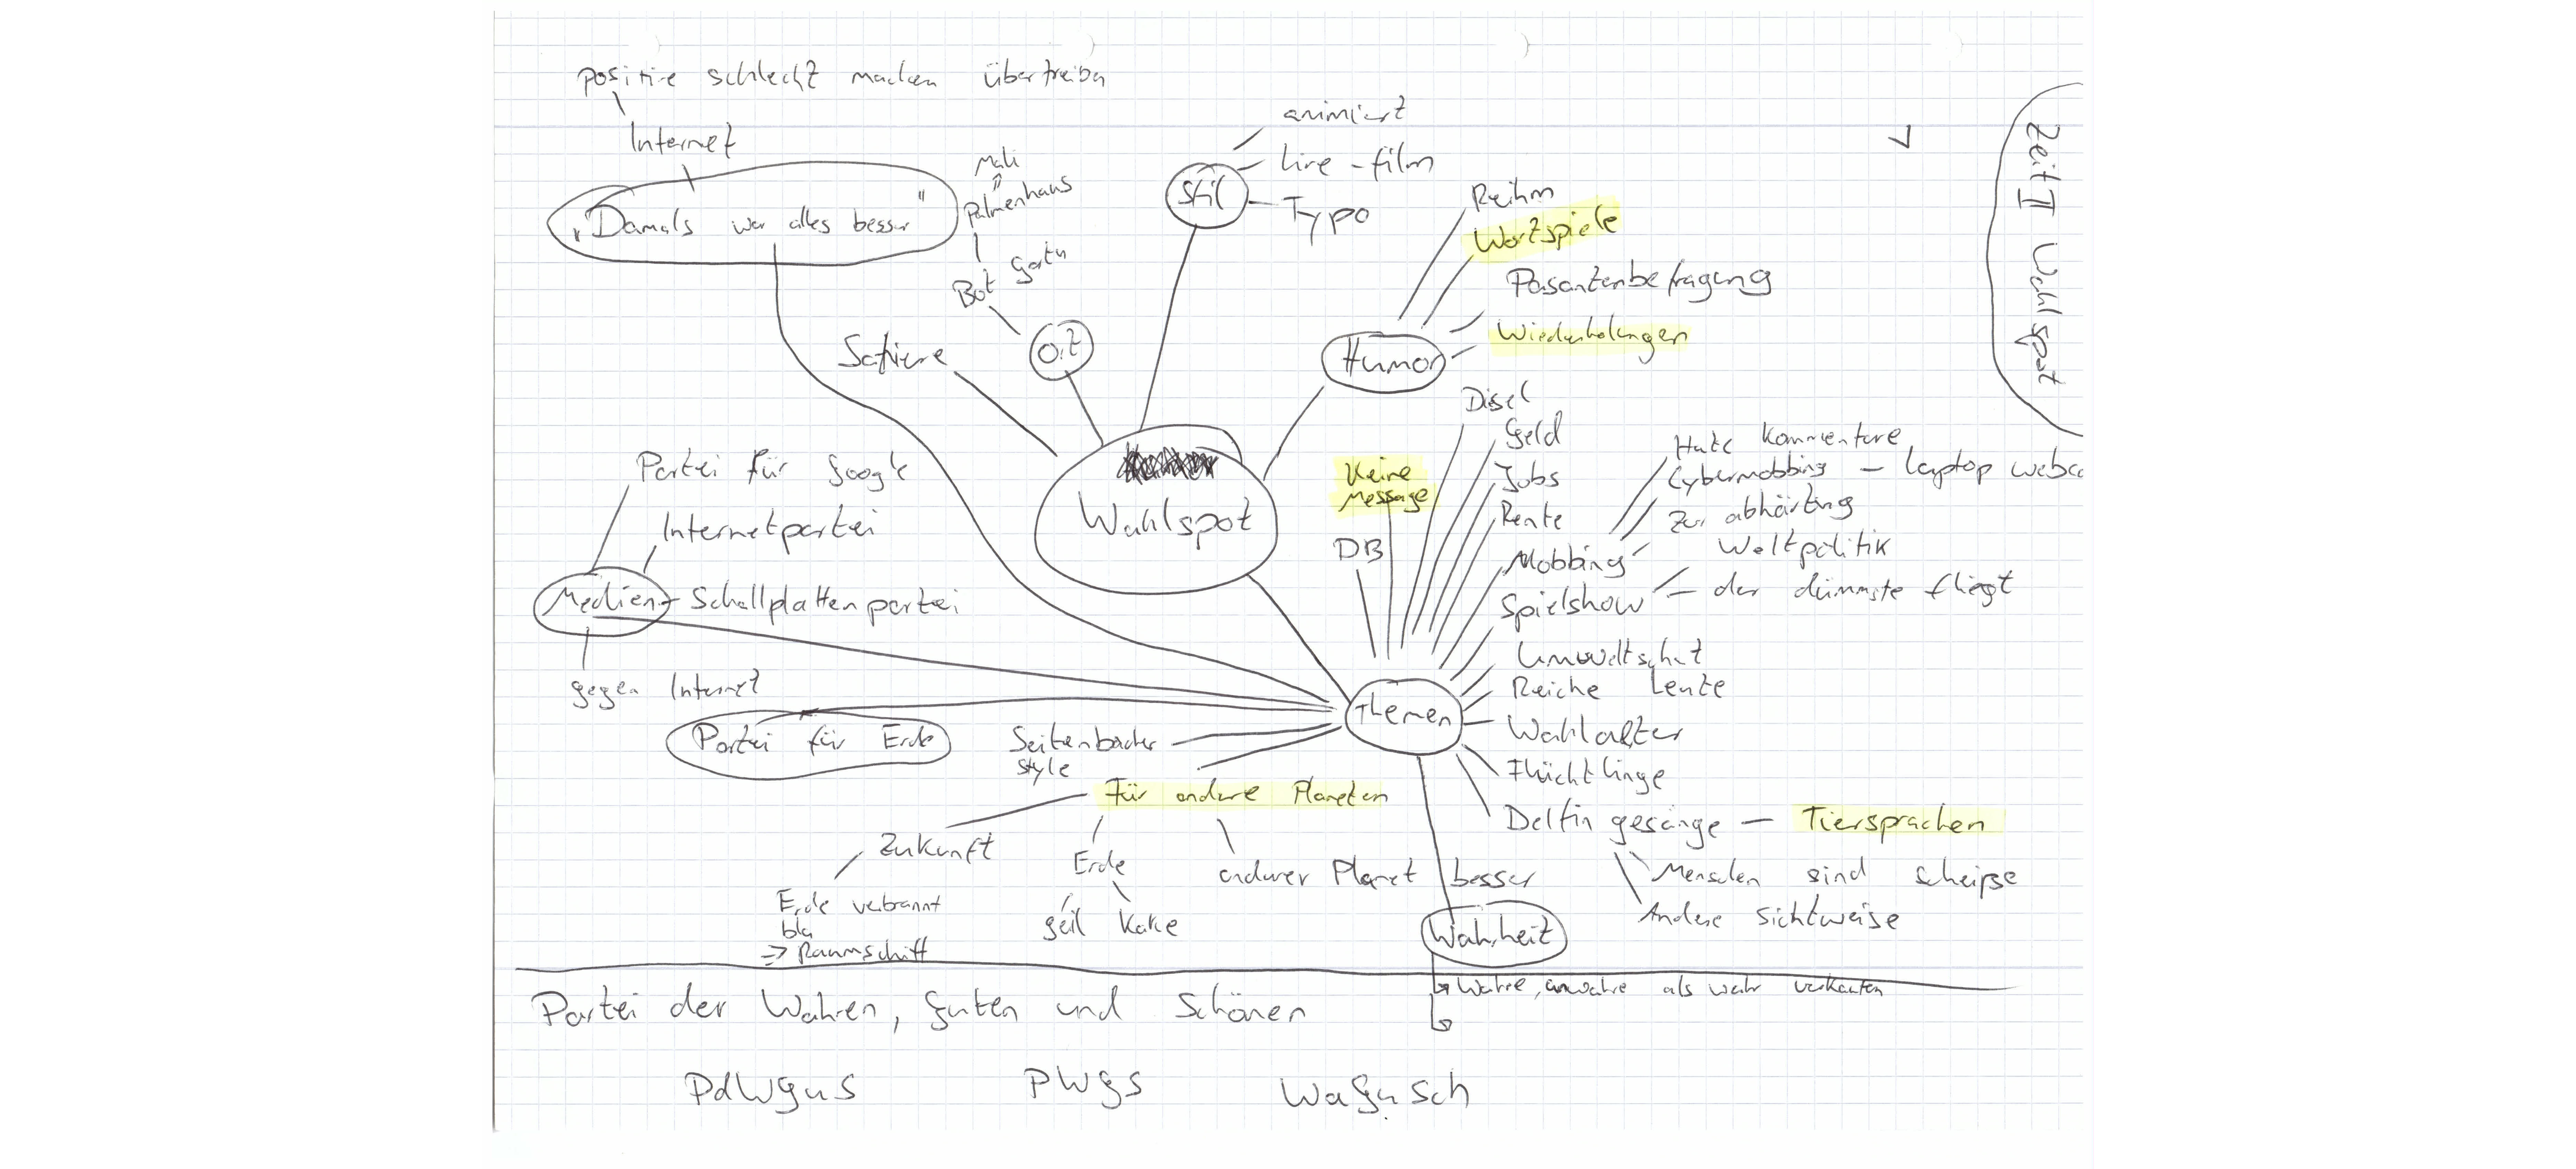 positive schlecht machen übertreiben
Internet
"Damals war alles besser"
Mali
Palmenhaus
Bot Gartn
Ort
Satiere
Stil
animiert
Live-film
Typo
Humor
Reihm
Wortspiele
Pasantenbefragung
Wiederholungen
Zeit II Wahlspot
Wahlspot
Partei für Google
Internetpartei
Medien
Schallplattenpartei
gegen Internet
Partei für Erde
Seitenbacher
style
Themen
Keine
Message
DB
Disel
Geld
Jobs
Rente
Mobbing
Hate Kommentare
Cybermobbing - laptop webc
Zur abhärtung
Spielshow
Weltpolitik
der dümmste fliegt
Umweltschut
Reiche Leute
Wahlalter
Flüchtlinge
Delfin gesänge - Tiersprachen
Menschen sind scheiße
Andere Sichtweise
Für andere Planeten
Zukunft
Erde verbrannt
bla
=> Raumschiff
Erde
geil Kake
anderer Planet besser
Wahrheit
Wahre, unwahre als wahr verkaufen
Partei der Wahren, Guten und Schönen
PdWGuS
PWGS
WaGuSch